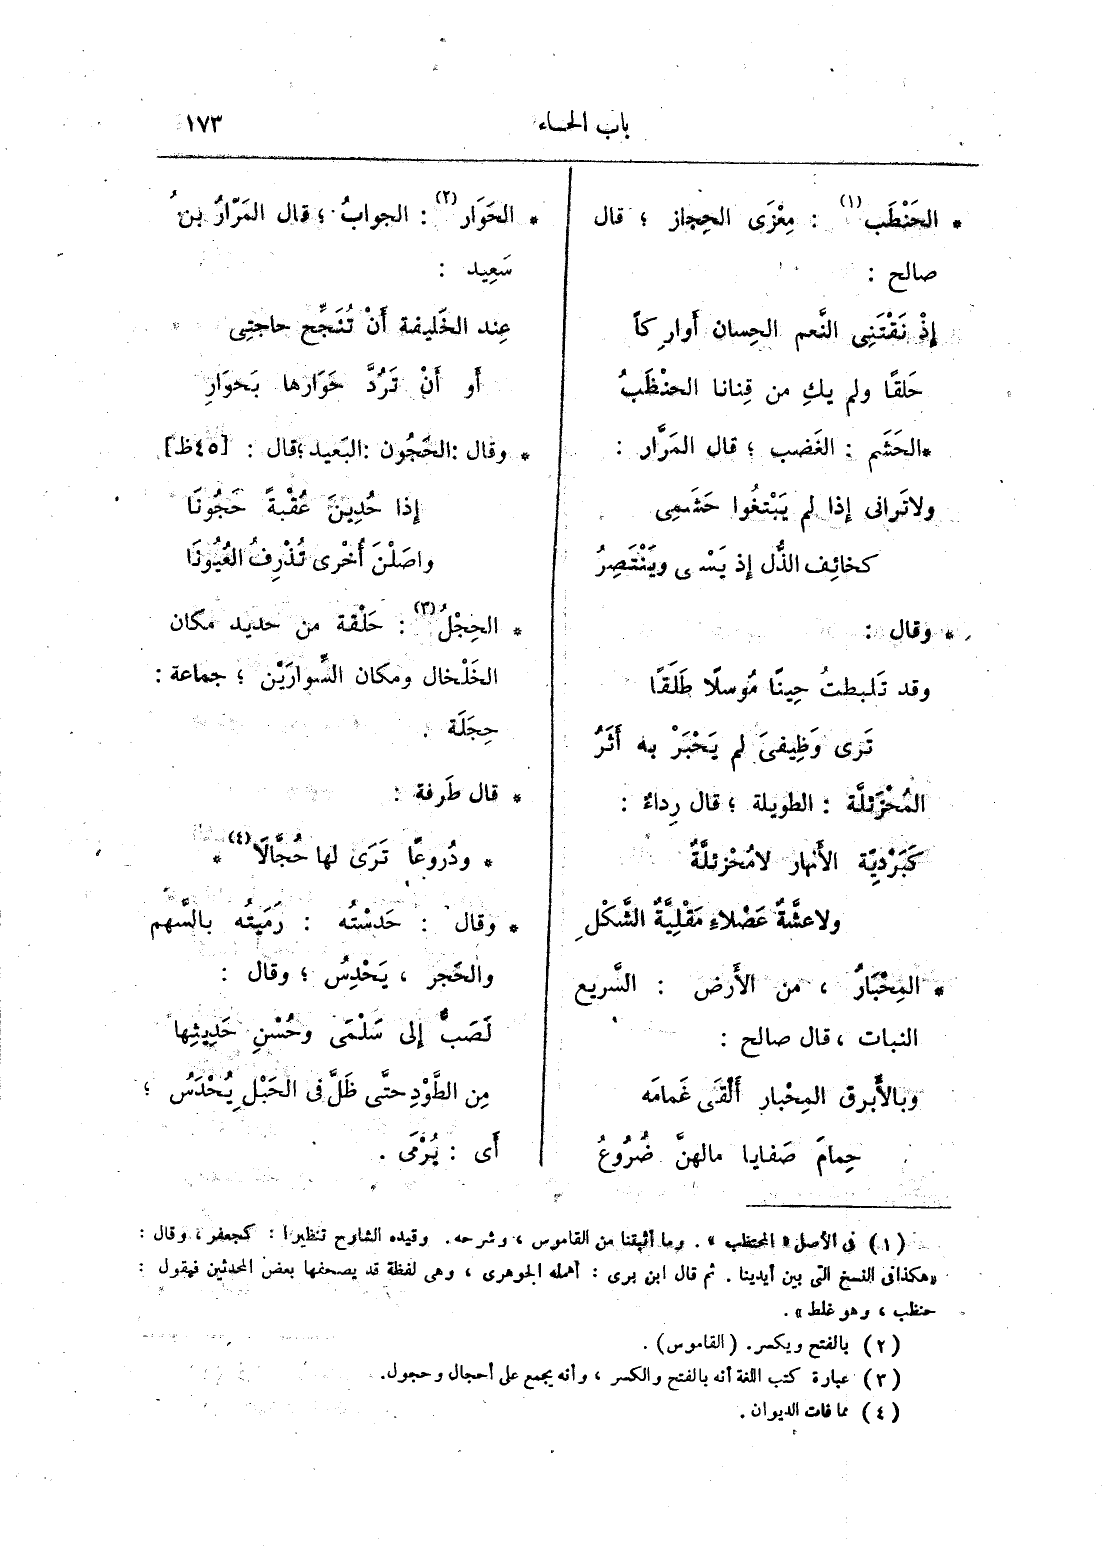 باب الحاء
١٧٣
* الحَنْطَب(١) : مِعْزَى الحِجاز ؛ قال
صالح :
إذْ نَقْتَنِى النَّعم الحِسان أَوارِكاً
حَلقًا ولم يكِ من قِنانا الحنْطَبُ
*الحَشَم : الغَضب ؛ قال المَرَّار :
ولاتَرانى إذا لم يَبْتغُوا حَشَمِى
كخائِف الذُّل إذ يَسْـى ويَنْتَصِرُ
* وقال :
وقد تَلبطتُ حِينًا مُوسلًا طَلَقًا
تَرى وَظِيفىَ لم يَحْبَرْ به أَثَرُ
المُحْزَئلَّة : الطويلة ؛ قال رِداءُ :
كَبَرْدِيّة الأَنهار لامُحْزئلَّةٌ
ولاعشَّةٌ عَضْلاءِ مَقْلِيَّةُ الشَّكْلِ
* المِحْبَارُ ، من الأَرض : السَّريع
النبات ، قال صالح :
وبالأَبرق المِحْبار أَلْقَى غَمامَه
حِمامَ صَفايا مالهنَّ ضُرُوعُ
* الحَوَار(٢) : الجوابُ ؛ قال المَرّارُ بنُ
سَعِيد :
عِند الخَليفة أَنْ تُنَجِّح حاجتِى
أَو أَنْ تَرُدَّ حَوَارها بَحوَارِ
* وقال :الحَجُون :البَعيد ؛قال : [٤٥ظ]
إذا حُدِينَ عُقْبةً حَجُونَا
واصَلْنَ أُخْرى تُذْرِفُ العُيُونَا
* الحِجْلُ(٣) : حَلْقة من حديد مكان
الخَلْخال ومكان السِّوارَيْن ؛ جماعة :
حِجَلَة .
* قال طَرفة :
* ودُروعًا تَرَى لها حُجَّالَا(٤) *
* وقال : حَدسْتُه : رَمَيتُه بالسَّهم
والحَجر ، يَحْدِسُ ؛ وقال :
لَصَبٌّ إلى سَلْمَى وحُسْنِ حَدِيثِها
مِن الطَّوْدِ حتَّى ظَلَّ فى الحَبْلِ يُحْدَسُ ؛
أَى : يُرْمَى .
(١) فى الأصل « المحتظب » . وما أثبتنا من القاموس ، وشرحه. وقيده الشارح تنظيرا : كجعفر ، وقال :
«هكذا فى النسخ التى بين أيدينا . ثم قال ابن برى : أهمله الجوهرى ، وهى لفظة قد يصحفها بعض المحدثين فيقول :
حنظب ، وهو غلط » .
(٢) بالفتح ويكسر. (القاموس) .
(٣) عبارة كتب اللغة أنه بالفتح والكسر ، وأنه يجمع على أحجال وحجول.
(٤) مما فات الديوان .